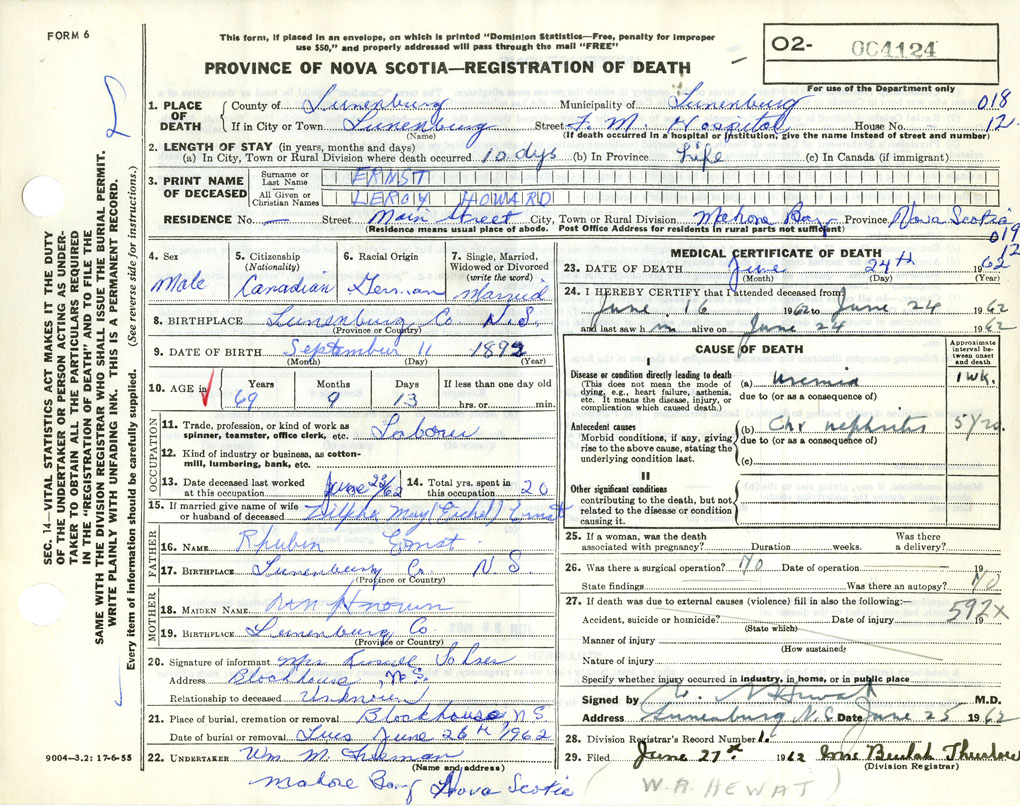 FORM 6
This form, if placed in an envelope, on which is printed "Dominion Statistics—Free, penalty for improper
use $50," and properly addressed will pass through the mail "FREE"
PROVINCE OF NOVA SCOTIA—REGISTRATION OF DEATH
O2- 004124
For use of the Department only
1. PLACE OF DEATH
County of Lunenburg Municipality of Lunenburg 018
If in City or Town Lunenburg Street F. M. Hospital House No. 12.
(Name) (If death occurred in a hospital or institution, give the name instead of street and number)
2. LENGTH OF STAY (in years, months and days)
(a) In City, Town or Rural Division where death occurred 10 dys (b) In Province Life (c) In Canada (if immigrant)
3. PRINT NAME OF DECEASED
Surname or Last Name ERNST
All Given or Christian Names LEROY HOWARD
RESIDENCE No. — Street Main Street City, Town or Rural Division Mahone Bay Province Nova Scotia
(Residence means usual place of abode. Post Office Address for residents in rural parts not sufficient)
019
12
4. Sex
Male
5. Citizenship
(Nationality)
Canadian
6. Racial Origin
German
7. Single, Married,
Widowed or Divorced
(write the word)
Married
8. BIRTHPLACE Lunenburg Co N.S.
(Province or Country)
9. DATE OF BIRTH September 11 1892
(Month) (Day) (Year)
10. AGE in
Years Months Days If less than one day old
69 9 13 hrs. or min.
OCCUPATION
11. Trade, profession, or kind of work as
spinner, teamster, office clerk, etc. Labour
12. Kind of industry or business, as cotton-
mill, lumbering, bank, etc.
13. Date deceased last worked
at this occupation June 23/62
14. Total yrs. spent in
this occupation 20
15. If married give name of wife
or husband of deceased Zilpha May (Eichel) Ernst
FATHER
16. NAME Rhubin Ernst
17. BIRTHPLACE Lunenburg Co. N S.
(Province or Country)
MOTHER
18. MAIDEN NAME Unknown
19. BIRTHPLACE Lunenburg Co
(Province or Country)
20. Signature of informant Mrs
Address Blockhouse, N.S.
Relationship to deceased Unknown
21. Place of burial, cremation or removal Blockhouse, N S
Date of burial or removal Tues June 26th 1962
22. UNDERTAKER Wm M.
(Name and address)
Mahone Bay Nova Scotia
9004—3.2: 17-6-55
MEDICAL CERTIFICATE OF DEATH
23. DATE OF DEATH June 24th 1962
(Month) (Day) (Year)
24. I HEREBY CERTIFY that I attended deceased from
June 16 1962 to June 24 1962
and last saw him alive on June 24 1962
CAUSE OF DEATH
Approximate interval between onset and death
I
Disease or condition directly leading to death
(This does not mean the mode of
dying, e.g., heart failure, asthenia,
etc. It means the disease, injury, or
complication which caused death.)
(a) Uremia 1 wk.
due to (or as a consequence of)
Antecedent causes
Morbid conditions, if any, giving
rise to the above cause, stating the
underlying condition last.
(b) Chr nephritis 5 yrs.
due to (or as a consequence of)
(c)
II
Other significant conditions
contributing to the death, but not
related to the disease or condition
causing it.
25. If a woman, was the death Was there
associated with pregnancy? Duration weeks. a delivery?
26. Was there a surgical operation? No Date of operation 19
State findings Was there an autopsy? No
27. If death was due to external causes (violence) fill in also the following:—
592X
Accident, suicide or homicide? Date of injury 19
(State which)
Manner of injury
(How sustained)
Nature of injury
Specify whether injury occurred in industry, in home, or in public place
Signed by W. A Hewat M.D.
Address Lunenburg N.S Date June 25 1962
28. Division Registrar's Record Number 1.
29. Filed June 27st 1962 Mrs Beulah
(Division Registrar)
( W. A. HEWAT )
SEC. 14—VITAL STATISTICS ACT MAKES IT THE DUTY
OF THE UNDERTAKER OR PERSON ACTING AS UNDER-
TAKER TO OBTAIN ALL THE PARTICULARS REQUIRED
IN THE "REGISTRATION OF DEATH" AND TO FILE THE
SAME WITH THE DIVISION REGISTRAR WHO SHALL ISSUE THE BURIAL PERMIT.
WRITE PLAINLY WITH UNFADING INK. THIS IS A PERMANENT RECORD.
Every item of information should be carefully supplied. (See reverse side for instructions.)